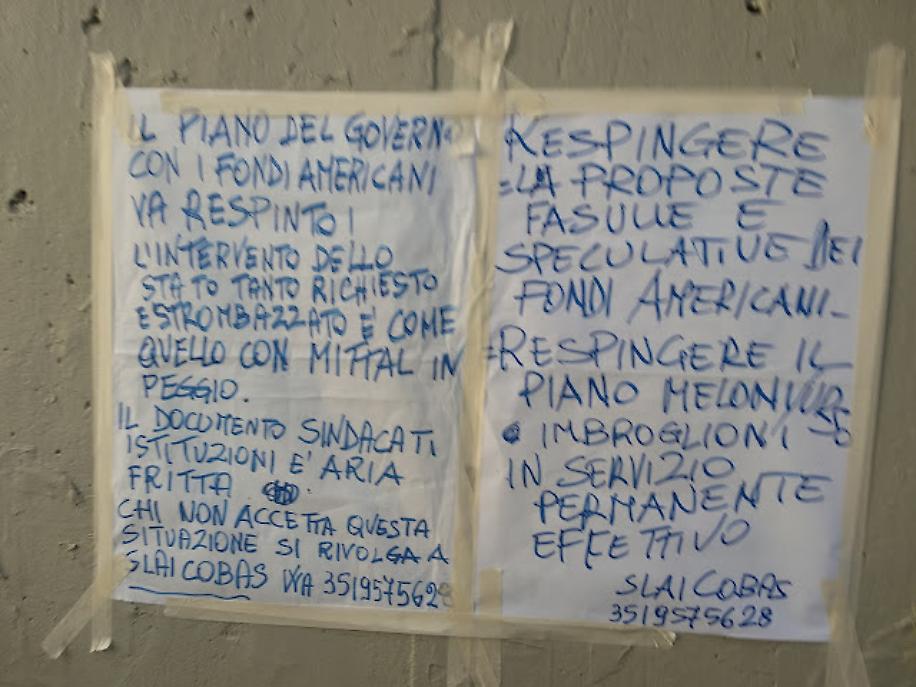 IL PIANO DEL GOVERNO
CON I FONDI AMERICANI
VA RESPINTO!
L'INTERVENTO DELLO
STATO TANTO RICHIESTO
E STROMBAZZATO E' COME
QUELLO CON MITTAL IN
PEGGIO.
IL DOCUMENTO SINDACATI
ISTITUZIONI E' ARIA
FRITTA
CHI NON ACCETTA QUESTA
SITUAZIONE SI RIVOLGA A
SLAI COBAS WA 3519575628
RESPINGERE
LA PROPOSTE
FASULLE E
SPECULATIVE DEI
FONDI AMERICANI-
=RESPINGERE IL
PIANO MELONI/
IMBROGLIONI
IN SERVIZIO
PERMANENTE
EFFETTIVO
SLAI COBAS
3519575628